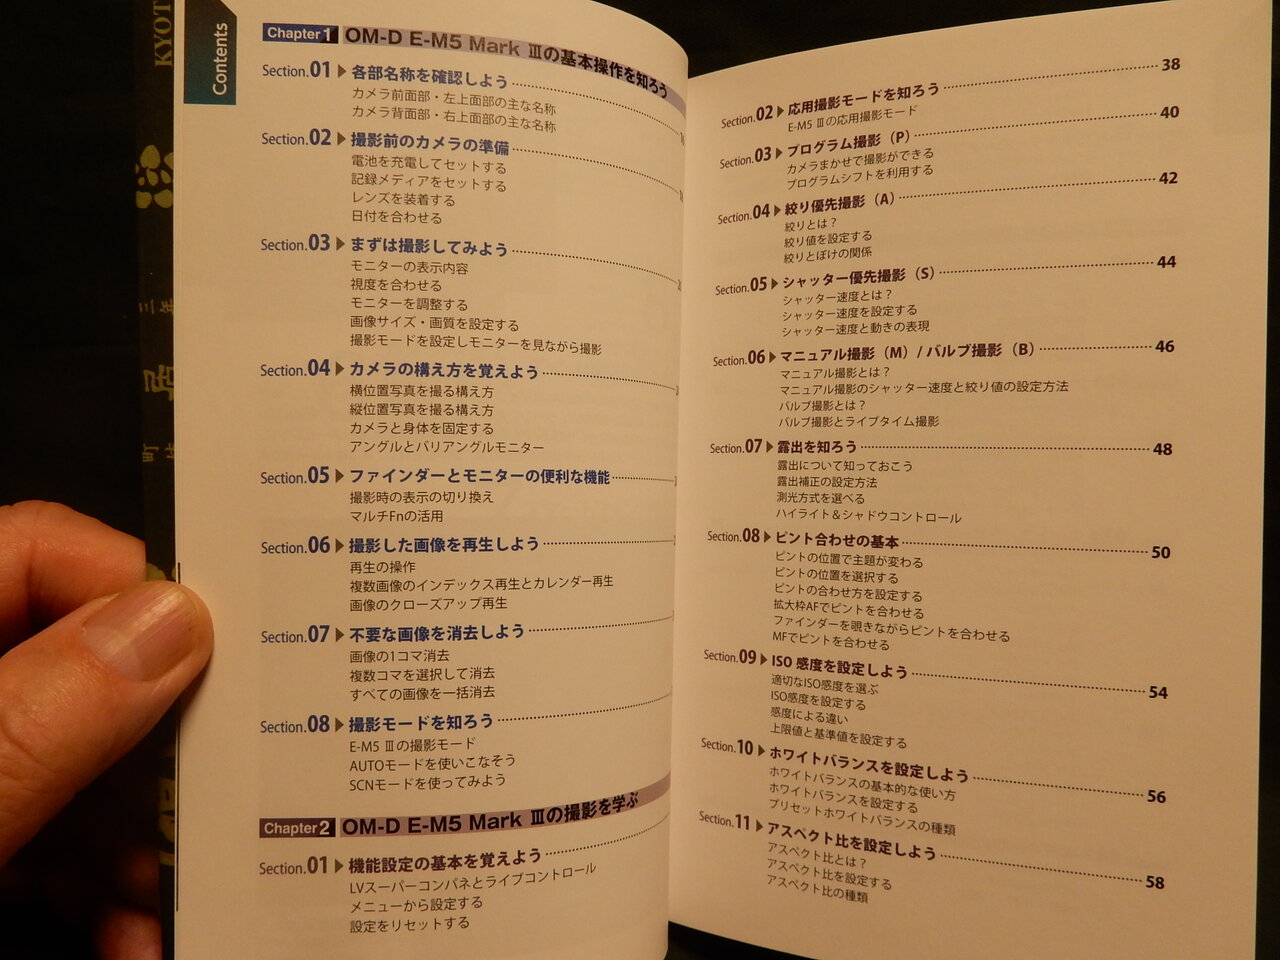 KYOT
Contents
Chapter 1 OM-D E-M5 Mark Ⅲの基本操作を知ろう
Section.01 ▶ 各部名称を確認しよう
カメラ前面部・左上面部の主な名称
カメラ背面部・右上面部の主な名称
Section.02 ▶ 撮影前のカメラの準備
電池を充電してセットする
記録メディアをセットする
レンズを装着する
日付を合わせる
Section.03 ▶ まずは撮影してみよう
モニターの表示内容
視度を合わせる
モニターを調整する
画像サイズ・画質を設定する
撮影モードを設定しモニターを見ながら撮影
Section.04 ▶ カメラの構え方を覚えよう
横位置写真を撮る構え方
縦位置写真を撮る構え方
カメラと身体を固定する
アングルとバリアングルモニター
Section.05 ▶ ファインダーとモニターの便利な機能
撮影時の表示の切り換え
マルチFnの活用
Section.06 ▶ 撮影した画像を再生しよう
再生の操作
複数画像のインデックス再生とカレンダー再生
画像のクローズアップ再生
Section.07 ▶ 不要な画像を消去しよう
画像の1コマ消去
複数コマを選択して消去
すべての画像を一括消去
Section.08 ▶ 撮影モードを知ろう
E-M5 Ⅲの撮影モード
AUTOモードを使いこなそう
SCNモードを使ってみよう
Chapter 2 OM-D E-M5 Mark Ⅲの撮影を学ぶ
Section.01 ▶ 機能設定の基本を覚えよう
LVスーパーコンパネとライブコントロール
メニューから設定する
設定をリセットする
Section.02 ▶ 応用撮影モードを知ろう 38
E-M5 Ⅲの応用撮影モード
Section.03 ▶ プログラム撮影（P） 40
カメラまかせで撮影ができる
プログラムシフトを利用する
Section.04 ▶ 絞り優先撮影（A） 42
絞りとは？
絞り値を設定する
絞りとぼけの関係
Section.05 ▶ シャッター優先撮影（S） 44
シャッター速度とは？
シャッター速度を設定する
シャッター速度と動きの表現
Section.06 ▶ マニュアル撮影（M）/ バルブ撮影（B） 46
マニュアル撮影とは？
マニュアル撮影のシャッター速度と絞り値の設定方法
バルブ撮影とは？
バルブ撮影とライブタイム撮影
Section.07 ▶ 露出を知ろう 48
露出について知っておこう
露出補正の設定方法
測光方式を選べる
ハイライト＆シャドウコントロール
Section.08 ▶ ピント合わせの基本 50
ピントの位置で主題が変わる
ピントの位置を選択する
ピントの合わせ方を設定する
拡大枠AFでピントを合わせる
ファインダーを覗きながらピントを合わせる
MFでピントを合わせる
Section.09 ▶ ISO 感度を設定しよう 54
適切なISO感度を選ぶ
ISO感度を設定する
感度による違い
上限値と基準値を設定する
Section.10 ▶ ホワイトバランスを設定しよう 56
ホワイトバランスの基本的な使い方
ホワイトバランスを設定する
プリセットホワイトバランスの種類
Section.11 ▶ アスペクト比を設定しよう 58
アスペクト比とは？
アスペクト比を設定する
アスペクト比の種類